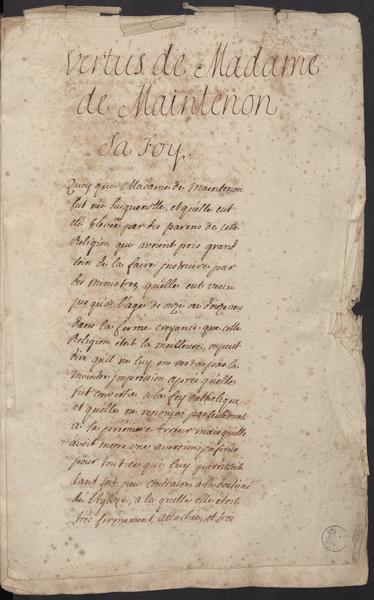 Vertus de Madame
de Maintenon
Sa Foy
Quoy que Madame de Maintenon
fut née huguenotte, et quelle eut
été Elevée par des parens de cette
Religion qui avoient pris grand
soin de la faire instruire par
des ministres, quelle eut vescu
jusqua l'age de onze ou douze ans
dans la ferme croyance que cette
Religion étoit la meilleure, on peut
dire qu'il ne luy en resta pas la
moindre impression apres quelle
fut convertie a la foy catholique
et quelle ne renonça pas seulement
a sa premiere Erreur mais quelle
avoit encore une aversion infinie
pour tout ce qui luy paroissoit
tant soit peu contraire a la doctrine
de l'Eglise, a la quelle elle étoit
très fermement attachée, et très